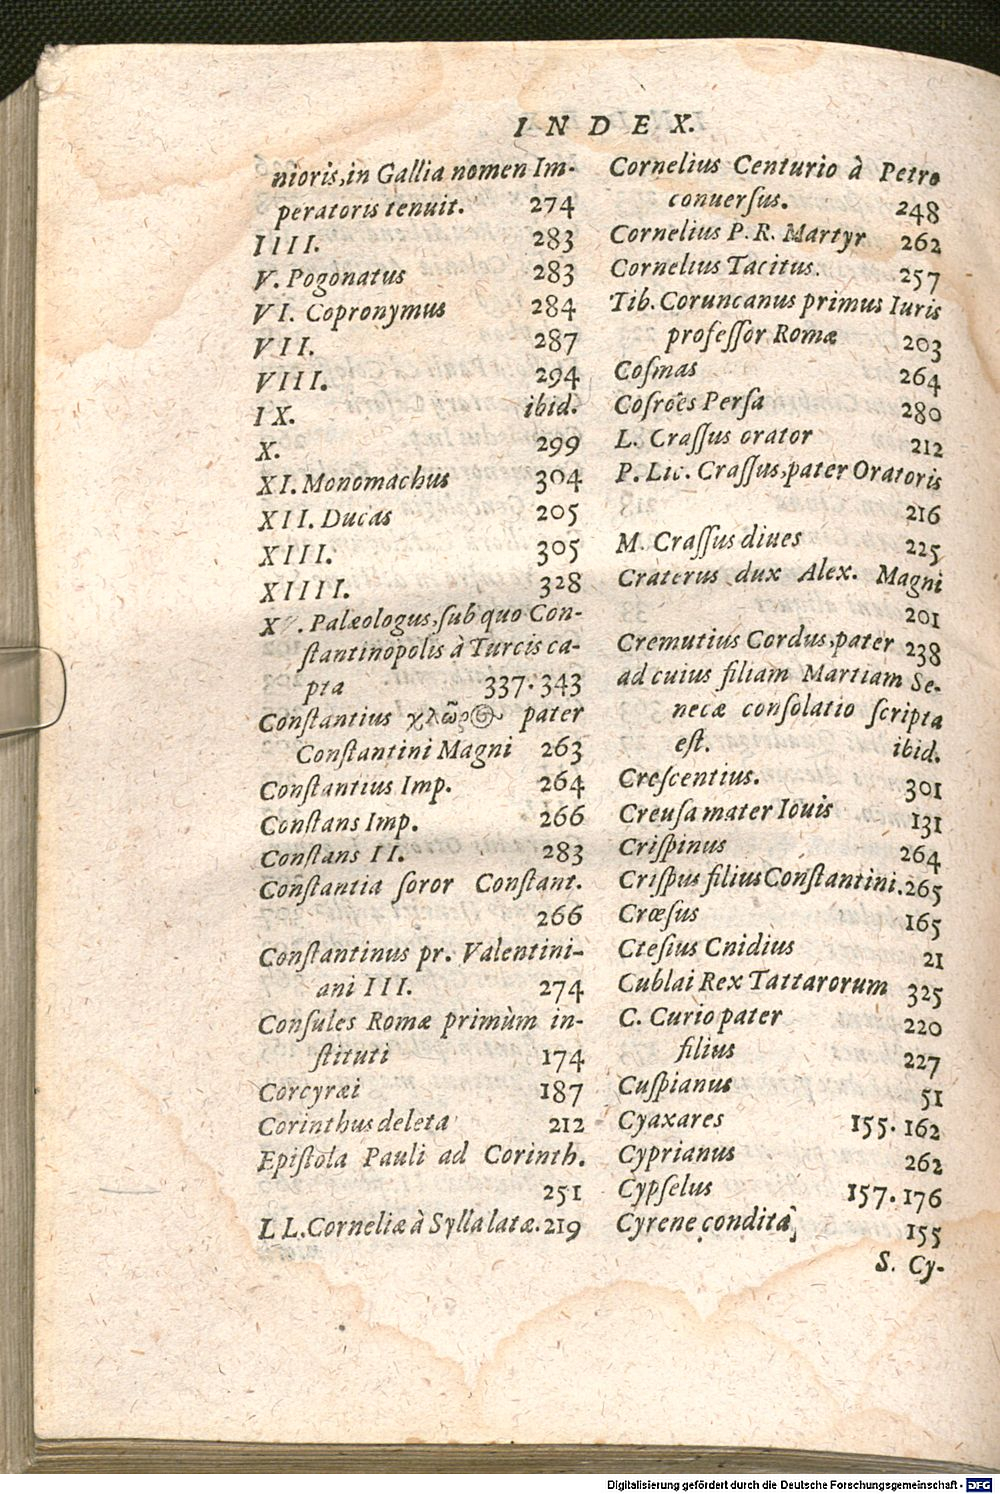 INDEX.
nioris,in Gallia nomen Im-
peratoris tenuit. 274
IIII. 283
V. Pogonatus 283
VI. Copronymus 284
VII. 287
VIII. 294
IX. ibid.
X. 299
XI. Monomachus 304
XII. Ducas 205
XIII. 305
XIIII. 328
XV. Palæologus,ſub quo Con-
ſtantinopolis à Turcis ca-
pta 337.343
Conſtantius pater
Conſtantini Magni 263
Conſtantius Imp. 264
Conſtans Imp. 266
Conſtans II. 283
Conſtantia ſoror Conſtant.
266
Conſtantinus pr. Valentini-
ani III. 274
Conſules Romæ primùm in-
ſtituti 174
Corcyræi 187
Corinthus deleta 212
Epiſtola Pauli ad Corinth.
251
LL.Corneliæ à Sylla latæ. 219
Cornelius Centurio à Petro
conuerſus. 248
Cornelius P. R. Martyr 262
Cornelius Tacitus. 257
Tib. Coruncanus primus Iuris
profeſſor Romæ 203
Coſmas 264
Coſroës Perſa 280
L. Craſſus orator 212
P. Lic. Craſſus,pater Oratoris
216
M. Craſſus diues 225
Craterus dux Alex. Magni
201
Cremutius Cordus,pater 238
ad cuius filiam Martiam Se-
necæ conſolatio ſcripta
eſt. ibid.
Creſcentius. 301
Creuſa mater Iouis 131
Criſpinus 264
Criſpus filius Conſtantini. 265
Crœſus 165
Cteſius Cnidius 21
Cublai Rex Tattarorum 325
C. Curio pater 220
filius 227
Cuſpianus 51
Cyaxares 155.162
Cyprianus 262
Cypſelus 157.176
Cyrene condita 155
S. Cy-
Digitalisierung gefördert durch die Deutsche Forschungsgemeinschaft - DFG